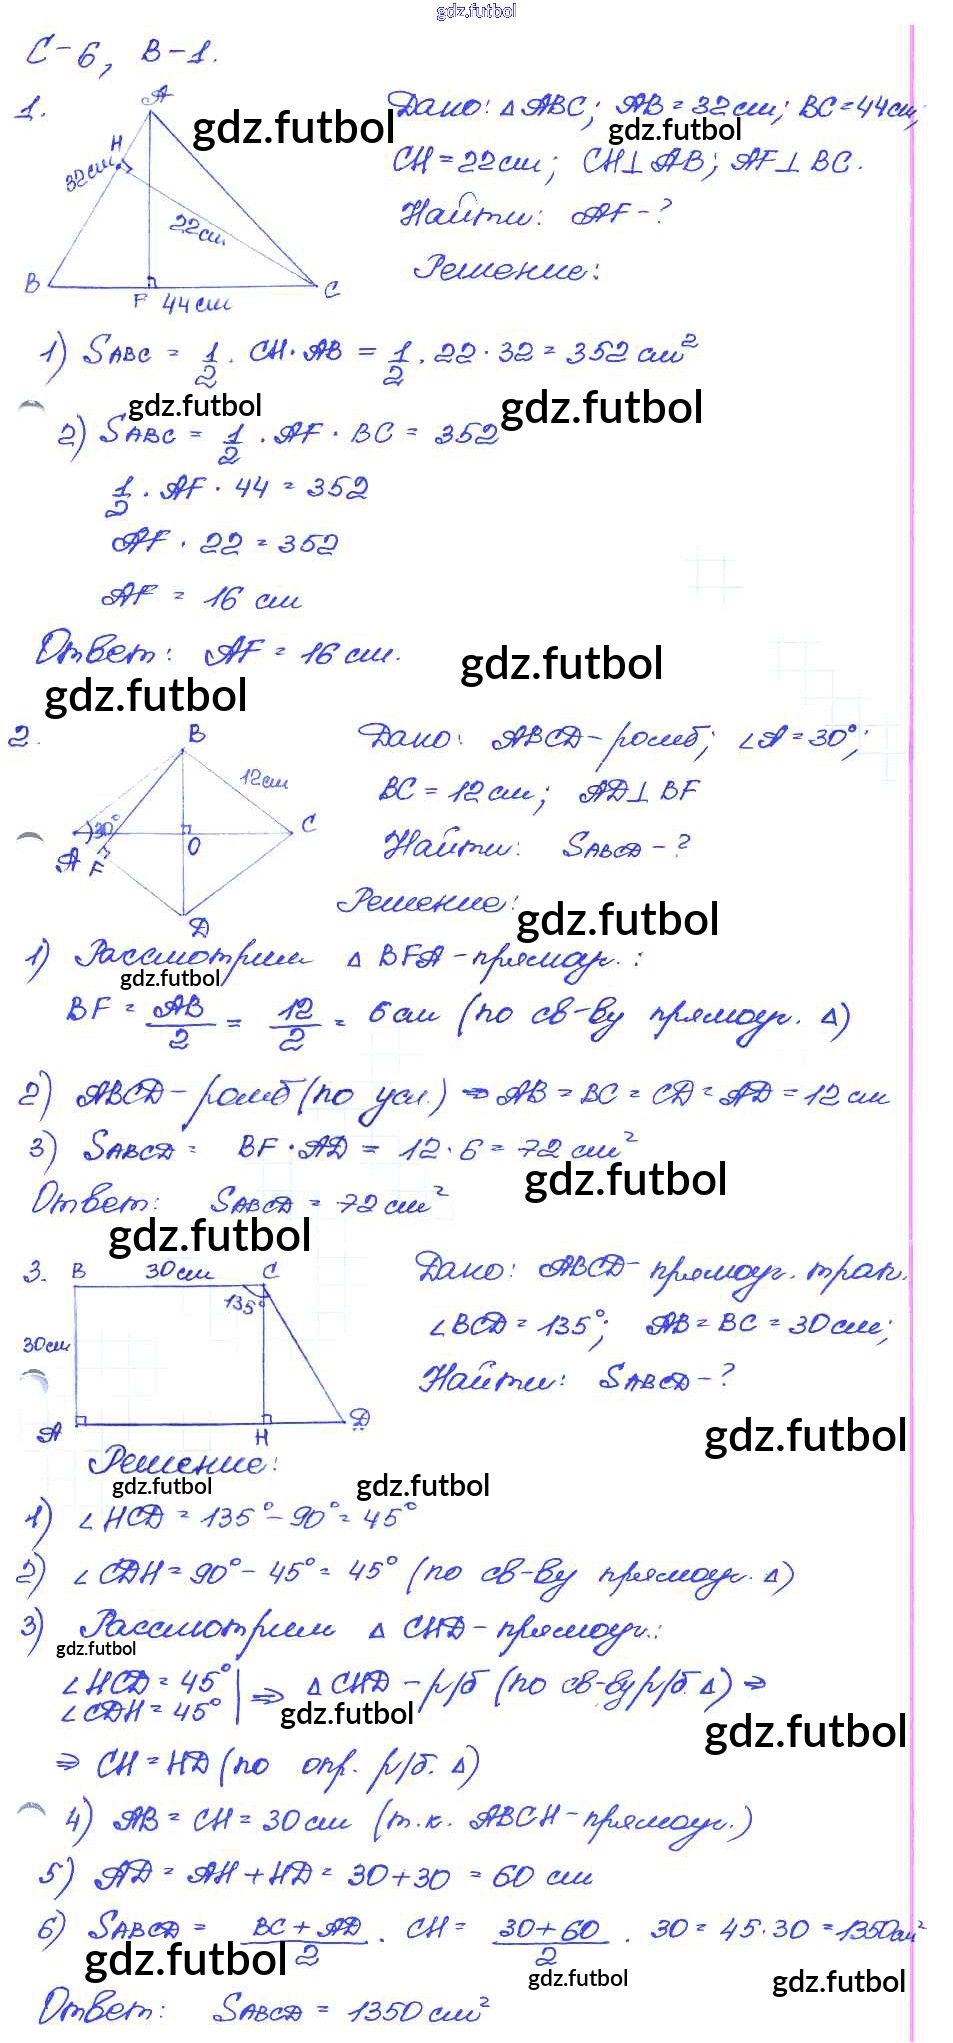 gdz.futbol
С-6, В-1.
1.
A
H
32см
22см
B
F
44см
C
gdz.futbol
Дано: △ABC; AB=32см; BC=44см;
gdz.futbol
CH=22см; CH⊥AB; AF⊥BC.
Найти: AF-?
Решение:
1) SABC = 1/2 · CH·AB = 1/2 · 22·32 = 352 см²
gdz.futbol
gdz.futbol
2) SABC = 1/2 · AF · BC = 352
1/2 · AF · 44 = 352
AF · 22 = 352
AF = 16 см
Ответ: AF = 16 см.
gdz.futbol
gdz.futbol
2.
B
12см
30°
C
O
A
F
D
Дано: ABCD-ромб; ∠A=30°;
BC=12см; AD⊥BF
Найти: SABCD-?
Решение:
gdz.futbol
1) Рассмотрим △BFA-прямоуг.:
gdz.futbol
BF = AB/2 = 12/2 = 6см (по св-ву прямоуг. △)
2) ABCD-ромб (по усл.) ⇒ AB = BC = CD = AD = 12 см
3) SABCD = BF·AD = 12·6 = 72 см²
gdz.futbol
Ответ: SABCD = 72 см²
gdz.futbol
3.
B
30см
C
135°
30см
A
H
D
Дано: ABCD-прямоуг. трап.
∠BCD=135°; AB=BC=30см;
Найти: SABCD-?
gdz.futbol
Решение:
gdz.futbol
gdz.futbol
1) ∠HCD=135°-90°=45°
2) ∠CDH=90°-45°=45° (по св-ву прямоуг. △)
3) Рассмотрим △CHD-прямоуг.:
gdz.futbol
∠HCD=45°
∠CDH=45°
⇒ △CHD-р/б (по св-ву р/б △) ⇒
gdz.futbol
gdz.futbol
⇒ CH=HD (по опр. р/б. △)
4) AB=CH=30см (т.к. ABCH-прямоуг.)
5) AD = AH+HD = 30+30 = 60 см
6) SABCD = BC+AD/2 · CH = 30+60/2 · 30 = 45·30 = 1350см²
gdz.futbol
gdz.futbol
gdz.futbol
Ответ: SABCD = 1350 см²